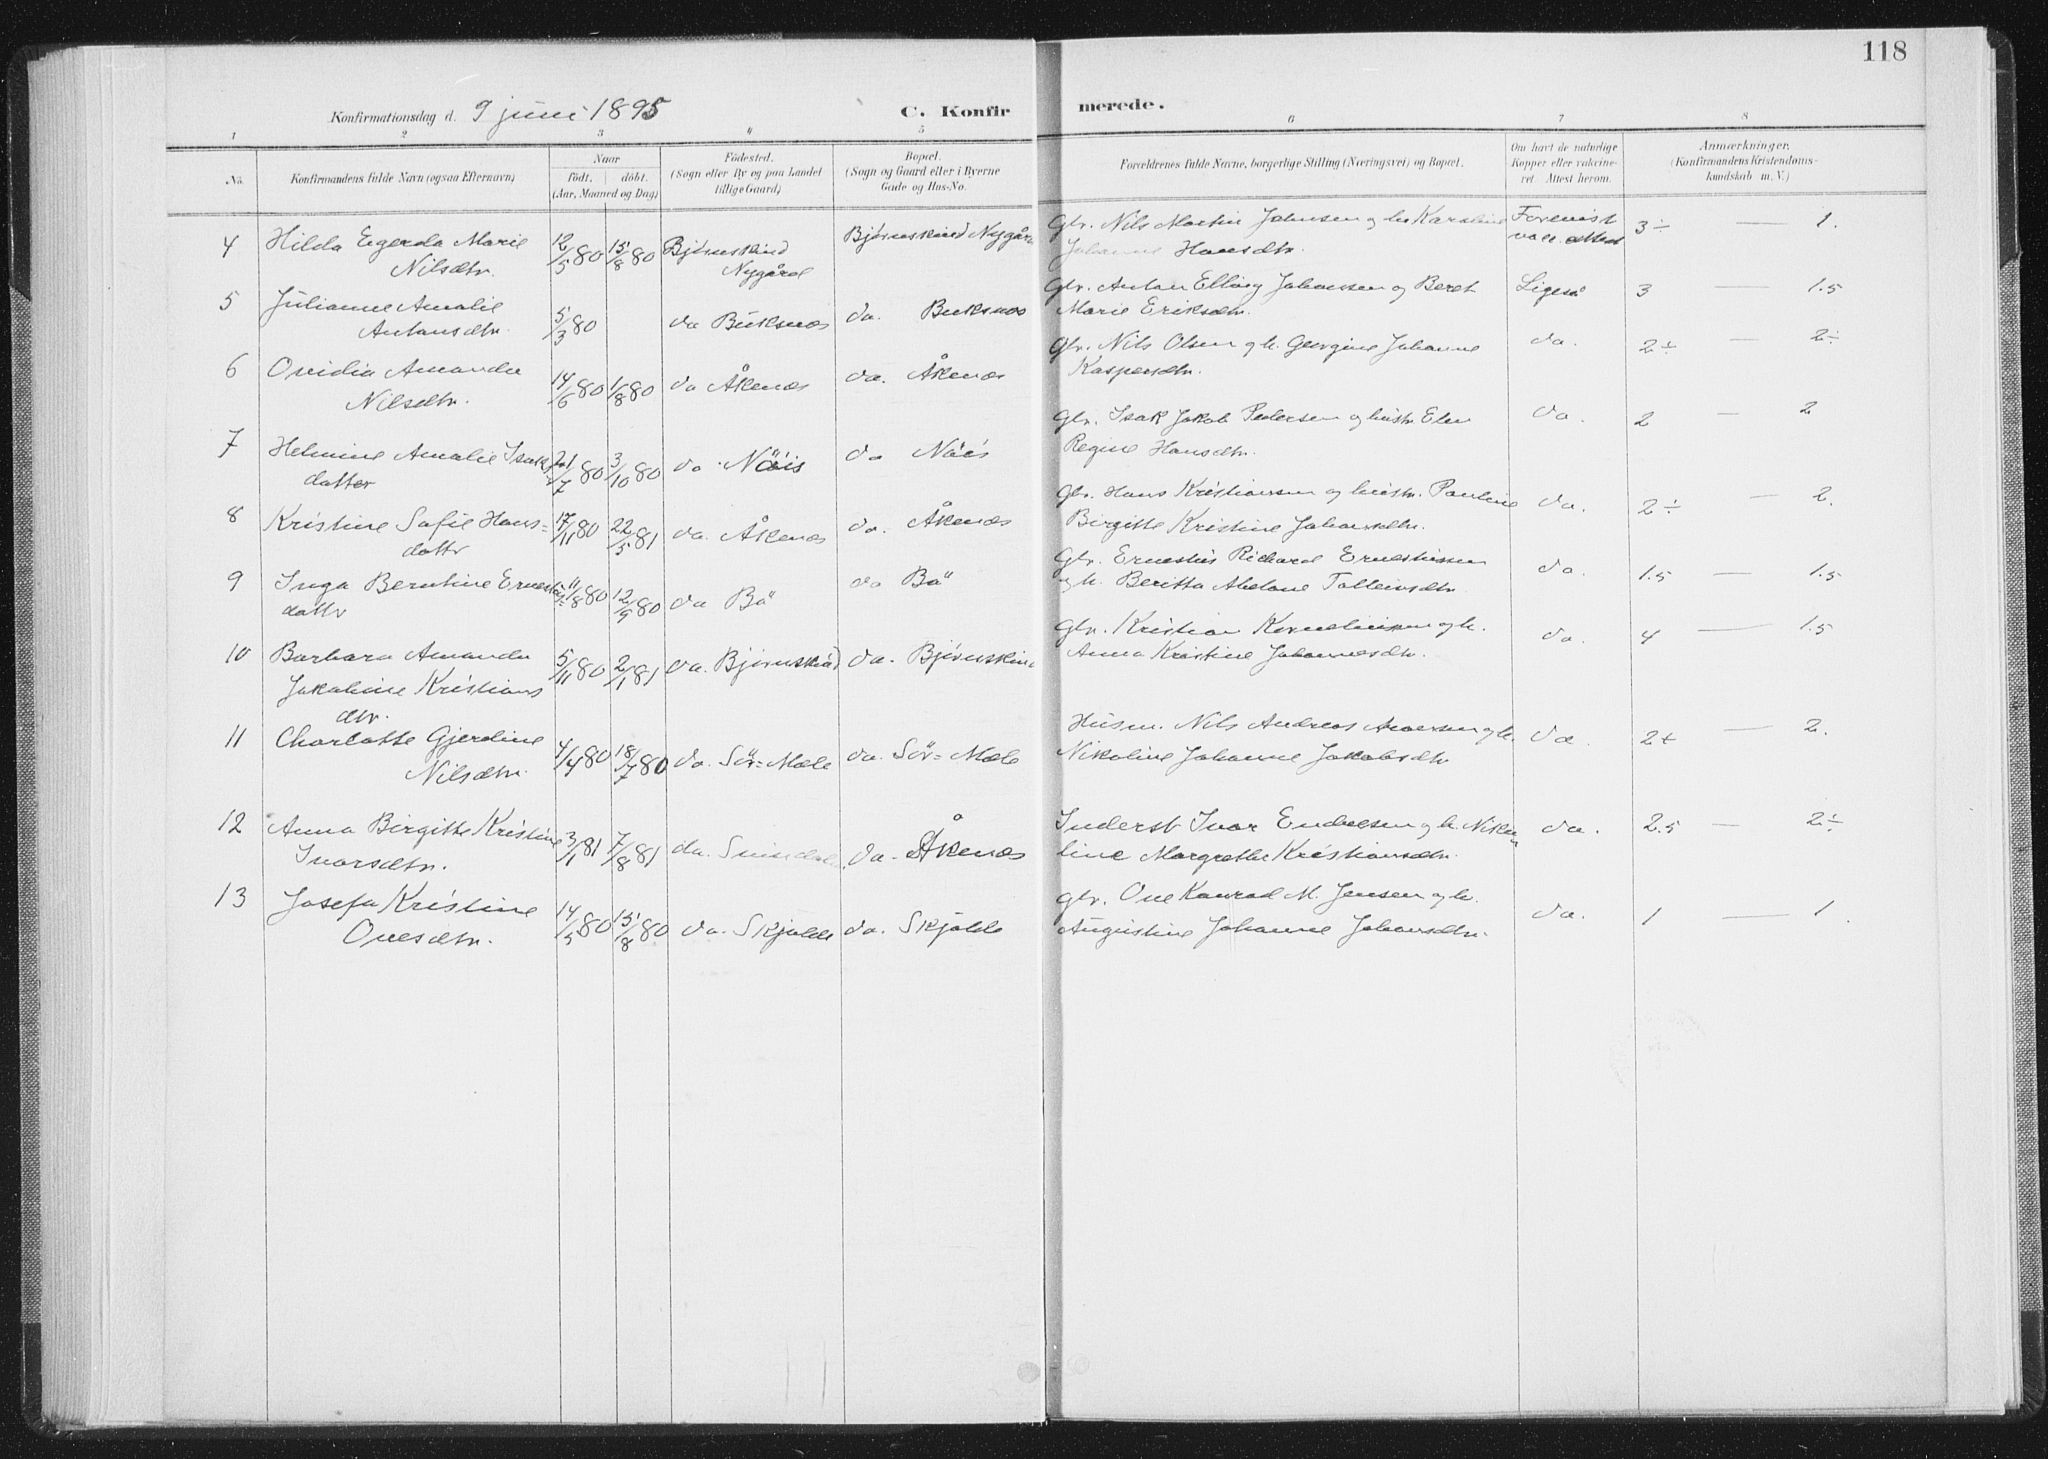 118
Konfirmationsdag d. 9 juni 1895
C. Konfirmerede.
1 2 3 4 5 6 7 8
No.
Konfirmandens fulde Navn (ogsaa Efternavn)
Naar
födt. döbt.
(Aar, Maaned og Dag)
Födested.
(Sogn eller By og paa Landet
tillige Gaard)
Bopæl.
(Sogn og Gaard eller i Byerne
Gade og Hus-No.
Forældrenes fulde Navne, borgerlige Stilling (Næringsvei) og Bopæl.
Om havt de naturlige
Kopper eller vakcine-
ret Attest herom.
Anmærkninger.
(Konfirmandens Kristendoms-
kundskab m. V.)
4 Hilda Egerda Marie
Nilsdtr. 12/5 80 15/8 80 Bjørnskind
Nygård Bjørnskind Nygård
Gbr. Nils Martin Johnsen og h. Karoline
Johanne Hansdtr. 3÷ — 1.
5 Julianne Amalie
Antonsdtr. 5/3 80 do Buksnæs do. Buksnæs
Gbr. Anton Elling Johansen og Beret
Marie Eriksdtr. Ligeså 3 — 1.5
6 Ovidia Amanda
Nilsdtr. 14/6 80 1/8 80 do Åkenæs do. Åkenæs
Gbr. Nils Olsen og h. Georgine Johanne
Kaspersdtr. do. 2÷ — 2÷
7 Helmine Amalie Isaks
datter 21/7 80 3/10 80 do. Nöis do Nöis
Gbr. Isak Jakob Pedersen og hustr. Elen
Regine Hansdtr. do. 2 — 2
8 Kristine Sofie Hans=
dattr 17/11 80 22/5 81 do. Åkenæs do. Åkenæs
Gbr. Hans Kristiansen og hustr. Pauline
Birgitte Kristine Johansdtr. do. 2÷ — 2.
9 Inga Berntine Ernestus=
dattr 11/8 80 12/9 80 do Bö do Bö
Gbr. Ernestus Richard Ernestussen
og h. Beritta Abelone Tolleivsdtr. do. 1.5 — 1.5
10 Barbara Amanda
Jakobine Kristians
dtr. 5/11 80 2/1 81 do. Bjørnskind do. Bjørnskind
Gbr. Kristian Korneliussen og h.
Anna Kristine Johannesdtr. do. 4 — 1.5
11 Charlotte Gjerdine
Nilsdtr. 4/4 80 18/7 80 do. Sör=Mæle do. Sör=Mæle
Husm. Nils Andreas Andersen og h.
Nikoline Johanne Jakobsdtr do. 2+ — 2.
12 Anna Birgitte Kristine
Ivarsdtr. 3/1 81 7/8 81 do. do. Åkenæs
Inderst Ivar Endresen og h. Niko
line Margrethe Kristiansdtr. do. 2.5 — 2÷
13 Josefa Kristine
Ovesdtr. 14/5 80 15/8 80 do. Skjolde do. Skjolde
Gbr. Ove Konrad M. Jensen og h.
Augustine Johanne Johansdtr. do. 1 — 1.